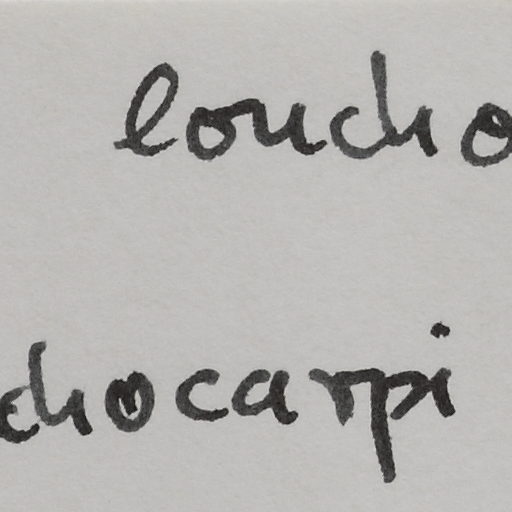 loncho
chocarpi